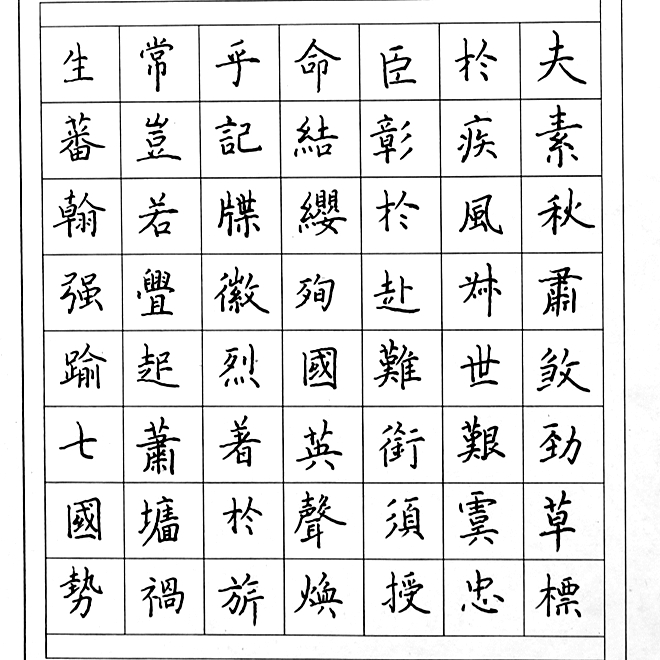 夫素秋肅煞勁草標
於疾風叔世艱虞忠
臣彰於赴難銜須授
命結纓殉國英聲煥
乎記牒徽烈著於旂
常豈若舋起蕭墻禍
生蕃翰强踰七國勢